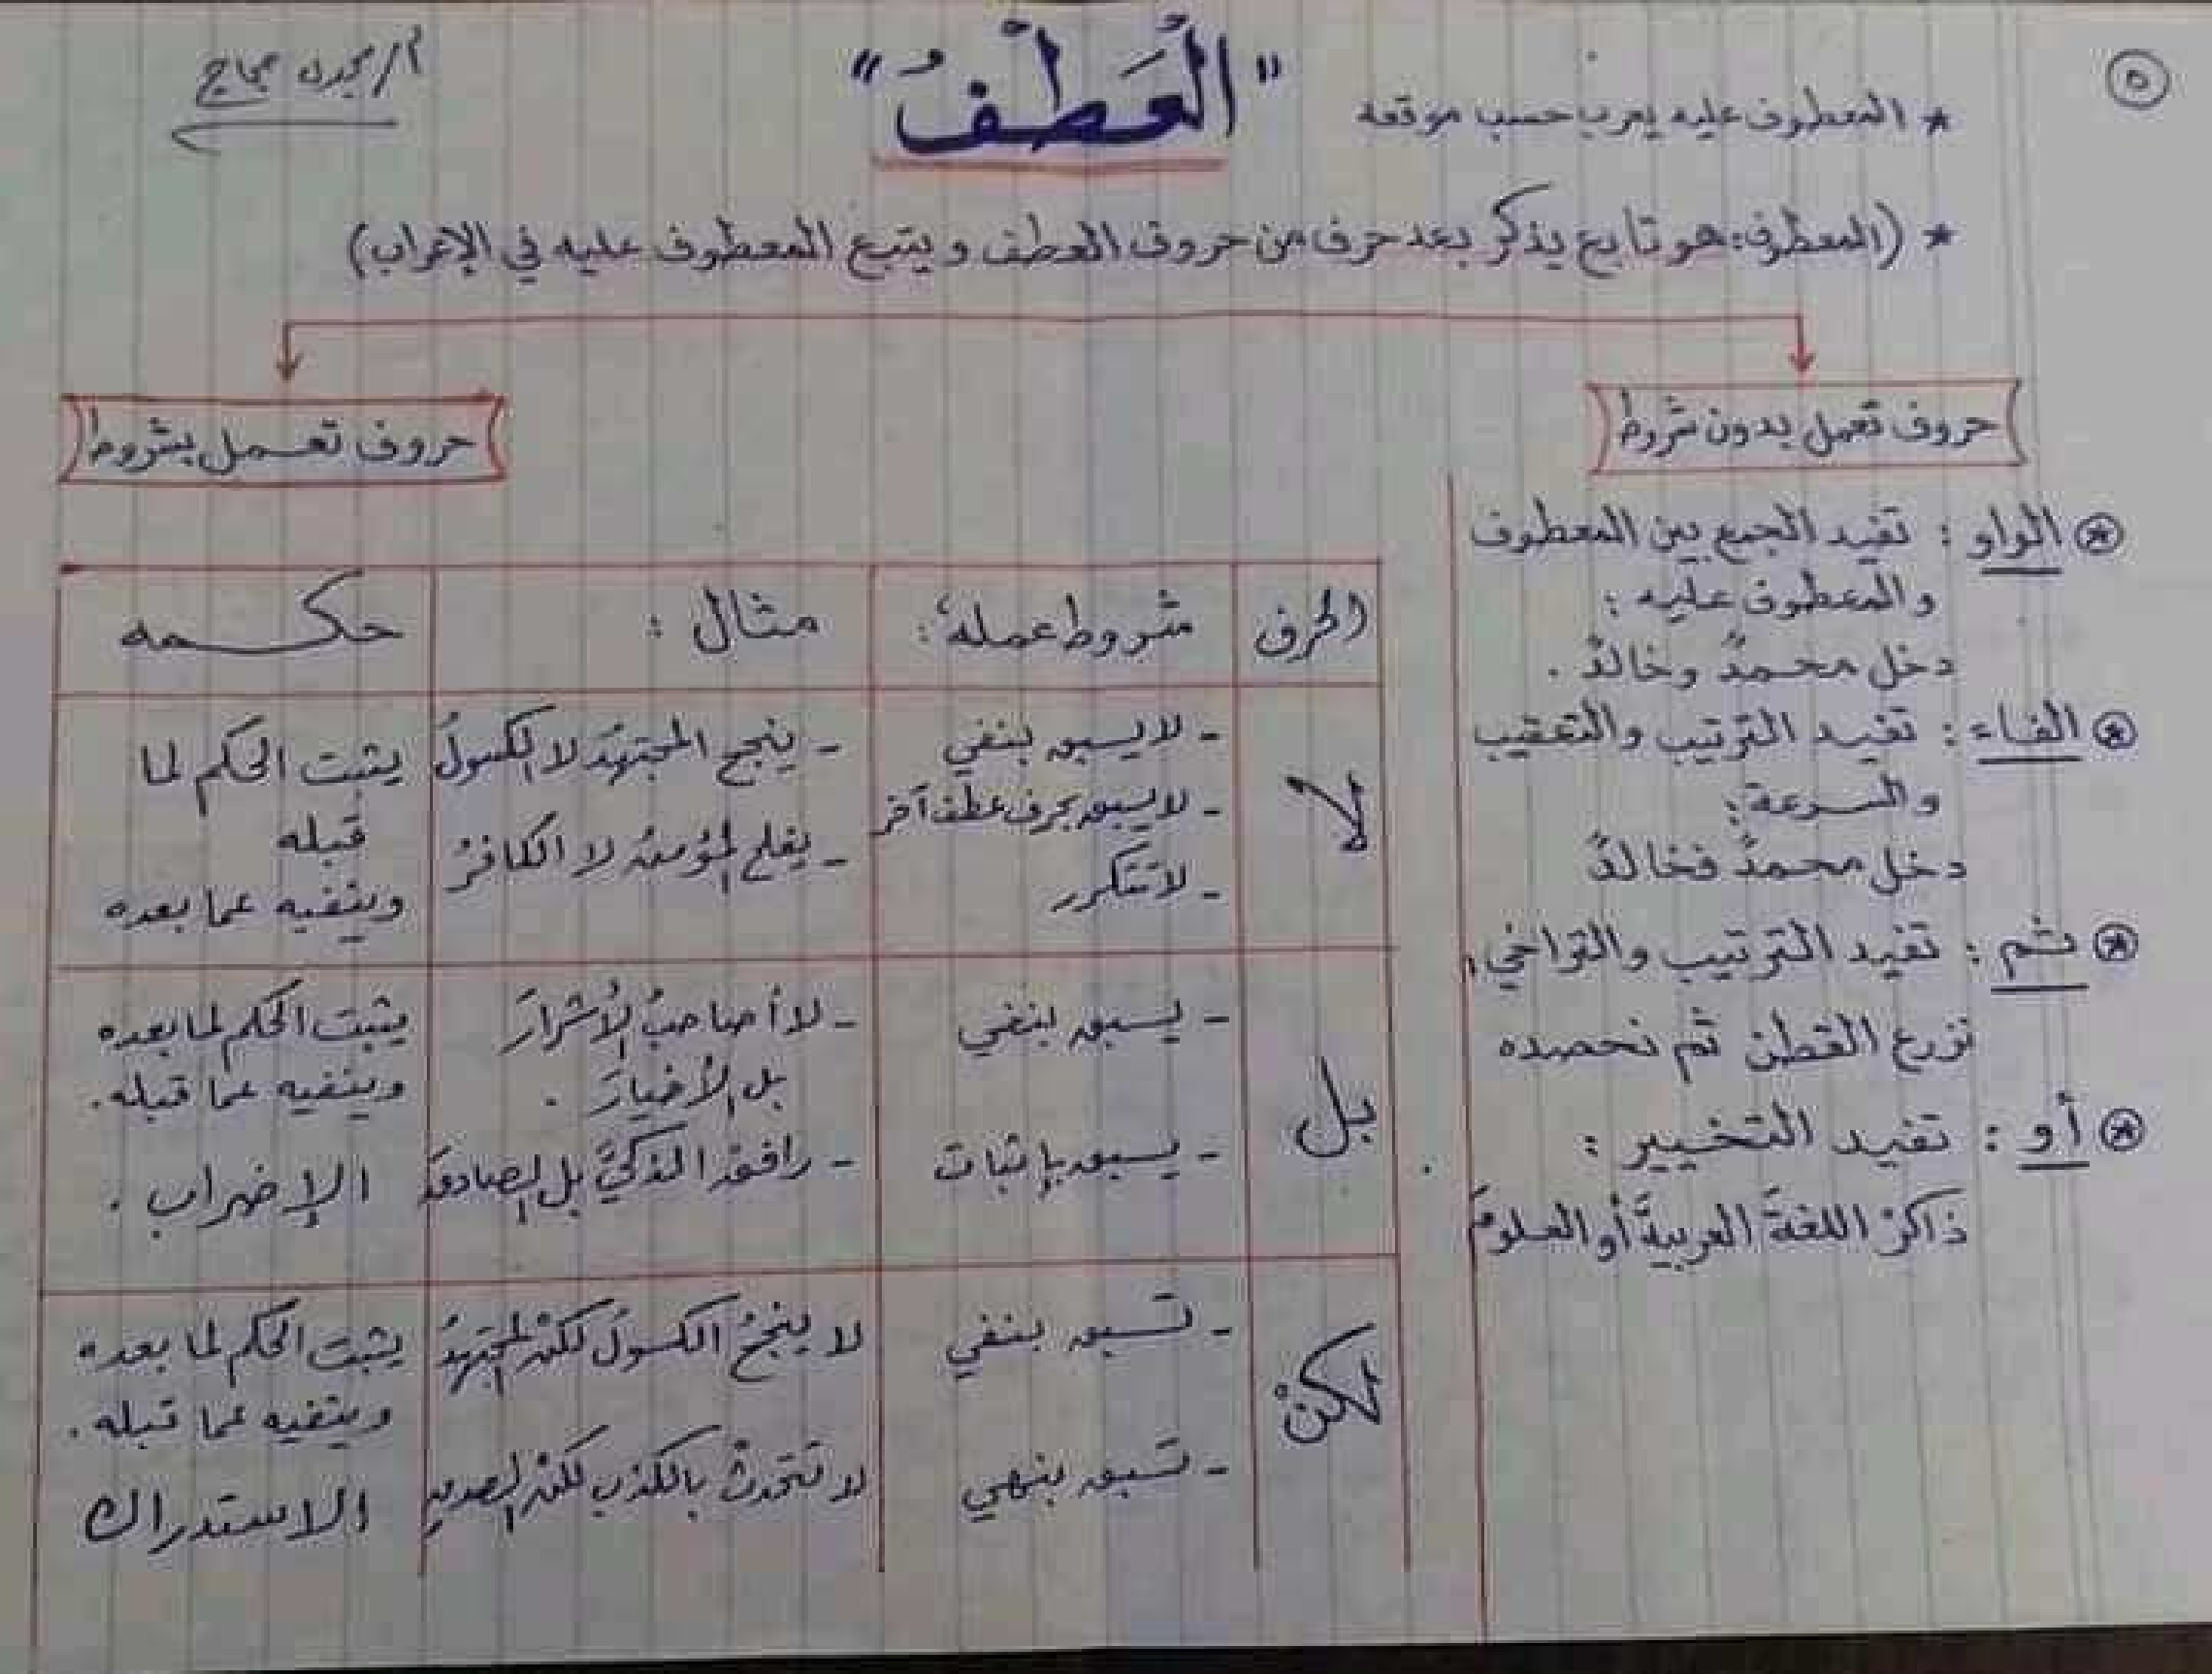 ٥
"العَطْفُ"
* المعطوف عليه يعرب حسب موقعه
* (المعطوف: هو تابع يذكر بعد حرف من حروف العطف و يتبع المعطوف عليه في الإعراب)
حروف تعمل بدون شروط
الواو : تفيد الجمع بين المعطوف
والمعطوف عليه :
دخل محمدٌ وخالدٌ .
الفاء : تفيد الترتيب والتعقيب
والسرعة :
دخل محمدٌ فخالدٌ
ثم : تفيد الترتيب والتراخي
نزرع القطن ثم نحصده
أو : تفيد التخيير :
ذاكرْ اللغةَ العربيةَ أو العلومَ
حروف تعمل بشروط
الحرف
شروط عمله :
مثال :
حكمه
لا
- لا يسبق بنفي
- لا يسبق بحرف عطف آخر
- لا تتكرر
- ينجح المجتهدُ لا الكسولُ
- يفلح المؤمنُ لا الكافرُ
يثبت الحكم لما
قبله
وينفيه عما بعده
بل
- يسبق بنفي
- يسبق بإثبات
- لا أصاحبُ الأشرارَ
بل الأخيارَ .
- رافق الذكيَّ بل الصادقَ
يثبت الحكم لما بعده
وينفيه عما قبله .
الإضراب .
لكنْ
- تسبق بنفي
- تسبق بنهي
لا ينجحُ الكسولُ لكنْ المجتهدُ
لا تتحدثْ بالكذبِ لكنْ الصدقِ
يثبت الحكم لما بعده
وينفيه عما قبله .
الاستدراك